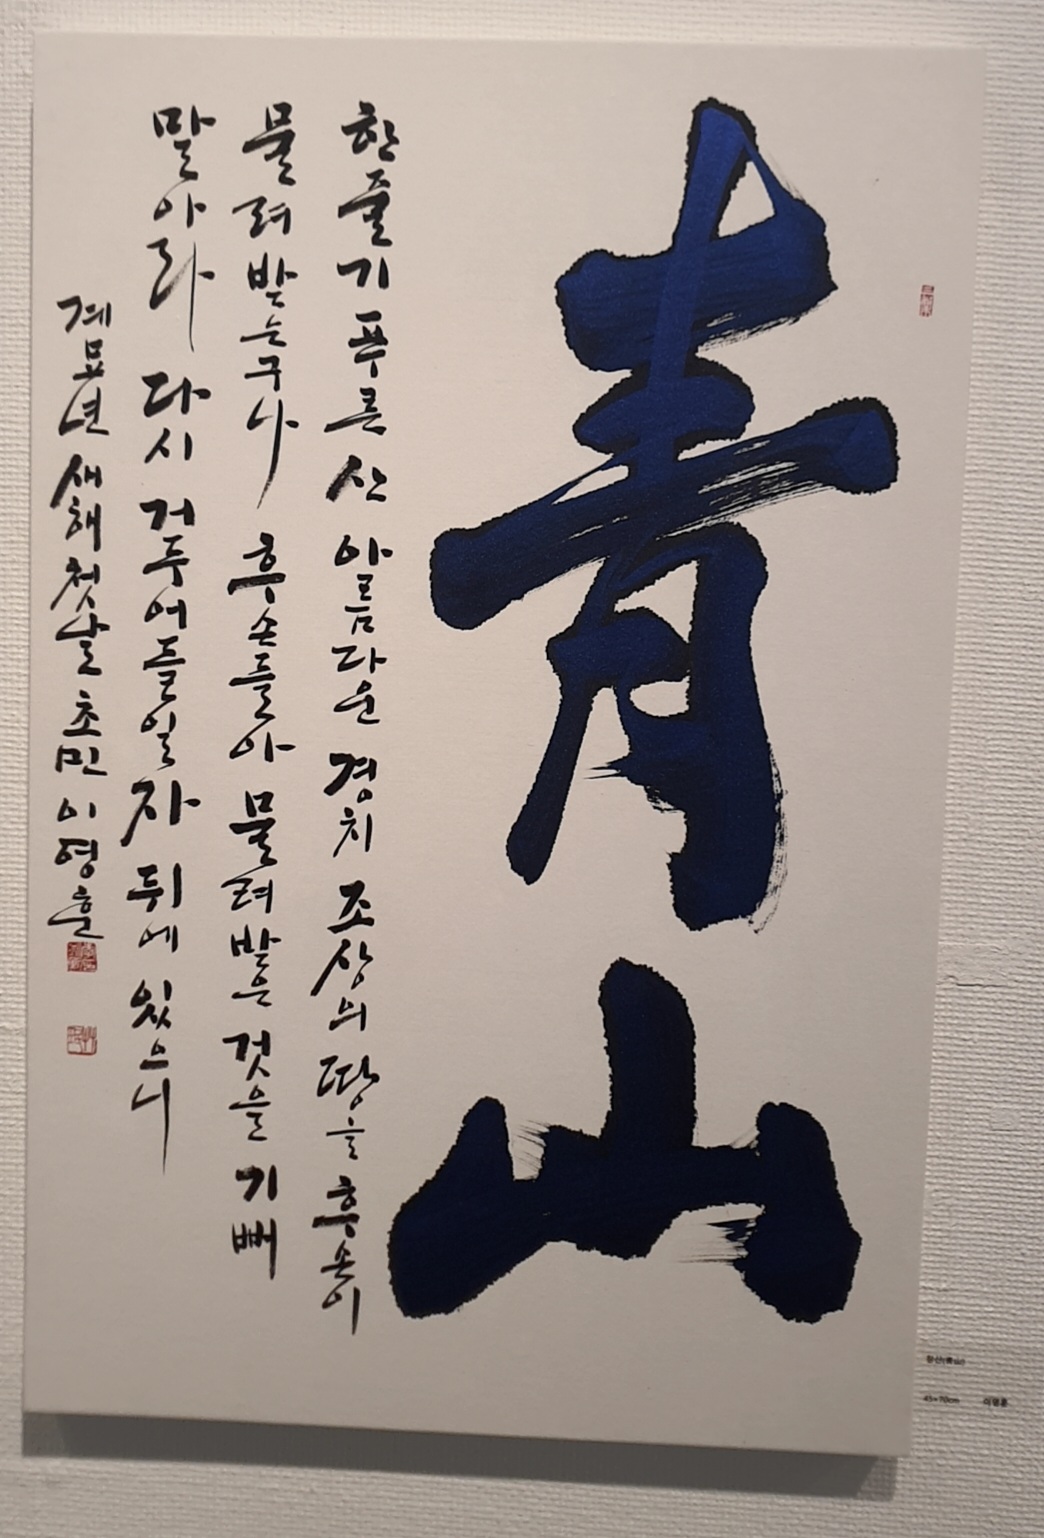 青山
한줄기 푸른 산 아름다운 경치 조상의 땅을 후손이
물려받는구나 후손들아 물려받은 것을 기뻐
말아라 다시 거두어들일 자 뒤에 있으니
계묘년 새해 첫날 초민 이영훈
청산(靑山)
45×70cm 이영훈